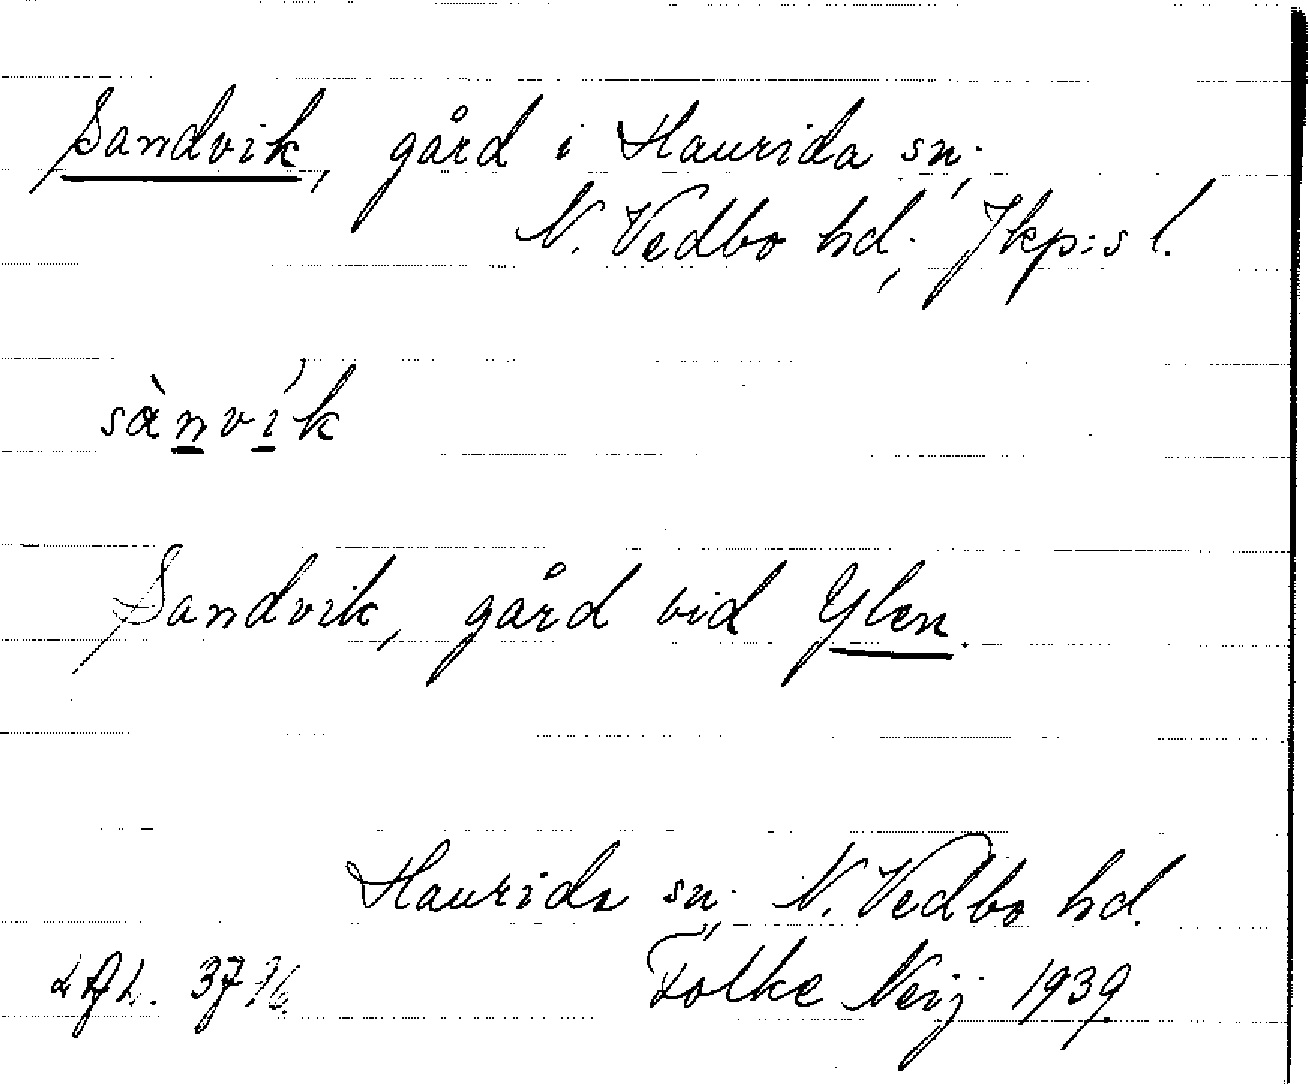 Sandvik, gård i Haurida sn;
N. Vedbo hd; Jkp:s l.
sànvík
Sandvik, gård vid Ylen.
Haurida sn; N. Vedbo hd.
Folke Neij 1939